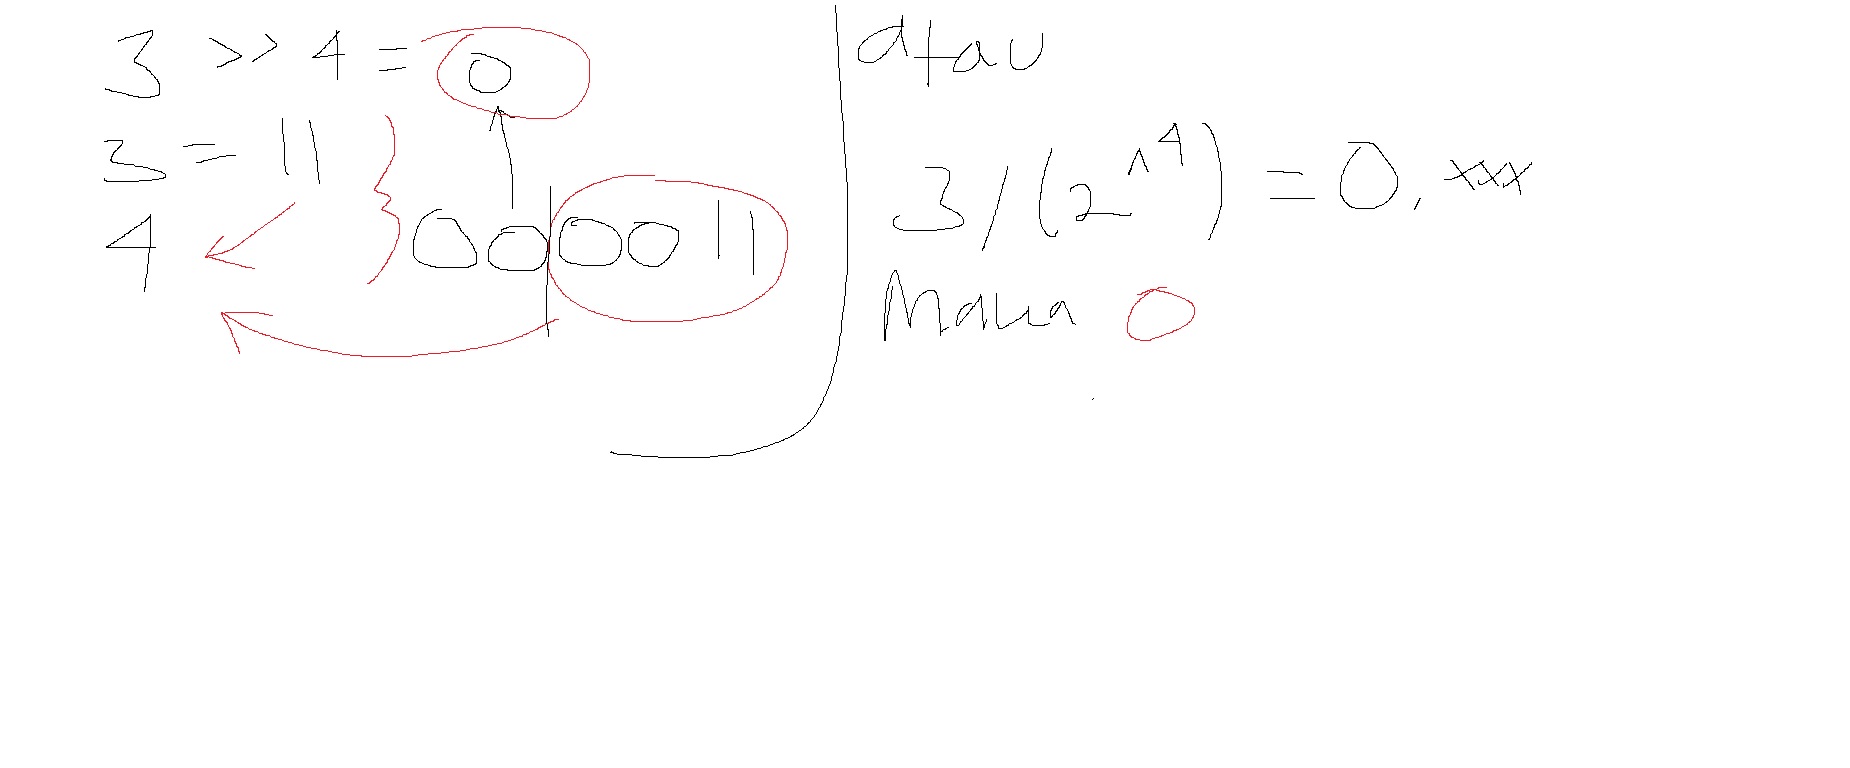 3 >> 4 = 0
3 = 11
4
00|0011
atau
3/(2^4) = 0,xxx
Maka 0